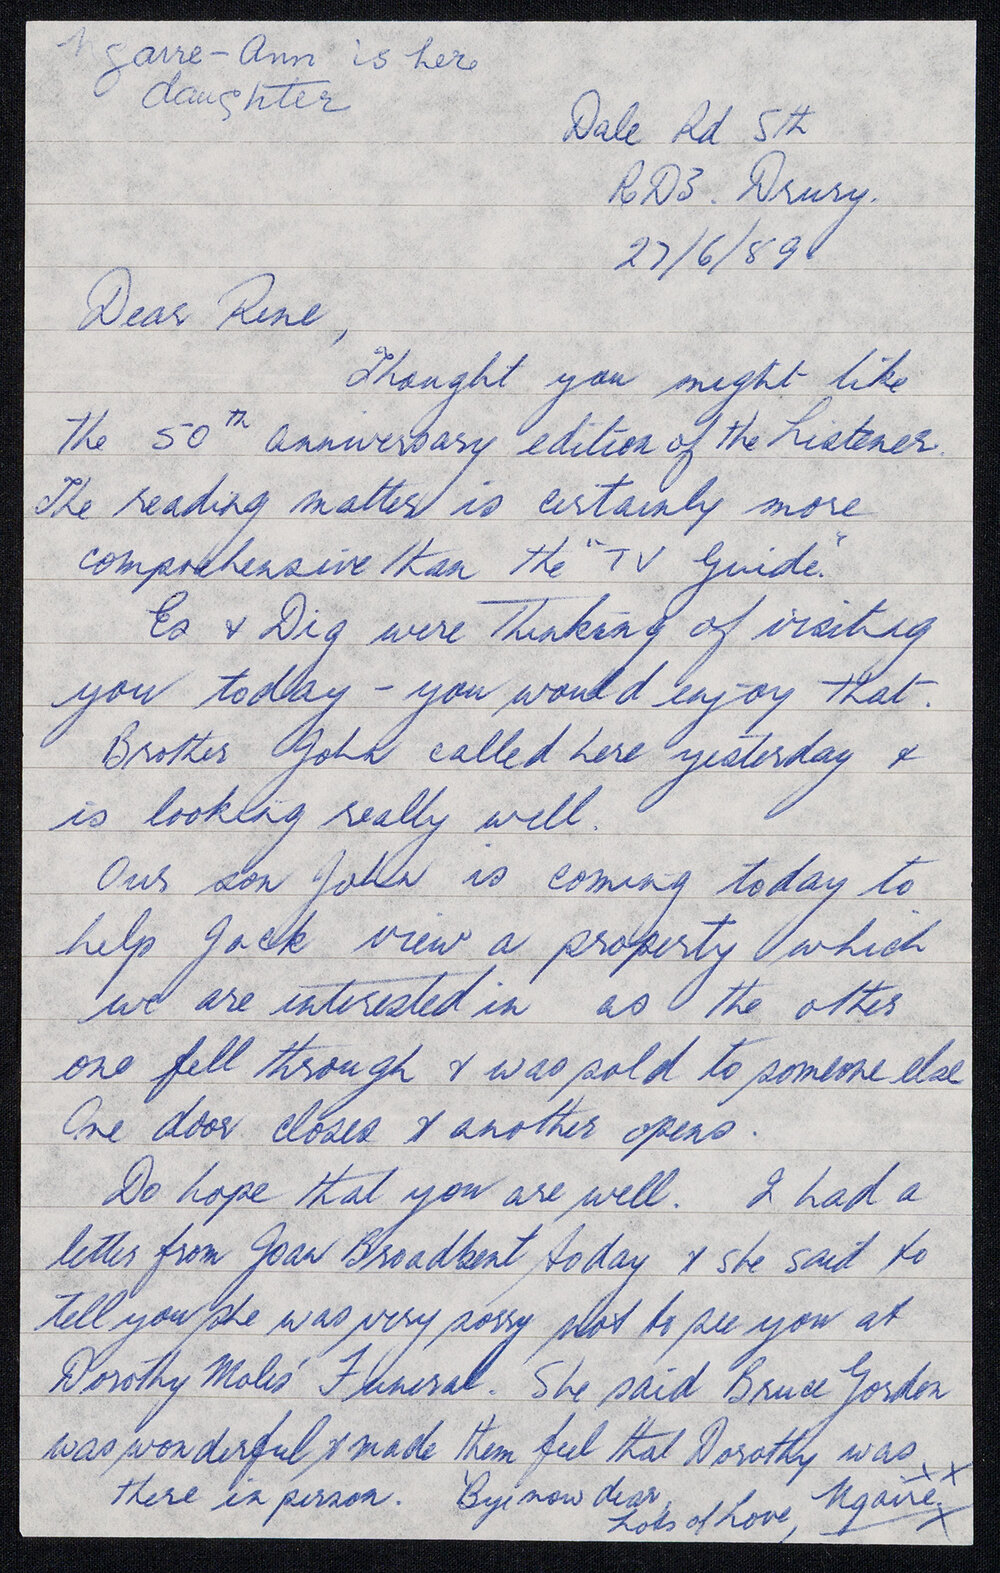 Ngarre-Ann is her
daughter
Dale Rd 5th
RD3. Drury.
27/6/89
Dear Rene,
Thought you might like
the 50th anniversary edition of the Listener.
The reading matter is certainly more
comprehensive than the "TV Guide."
Es & Dig were thinking of visiting
you today - you would enjoy that.
Brother John called here yesterday &
is looking really well.
Our son John is coming today to
help Jack view a property which
we are interested in as the other
one fell through & was sold to someone else
One door closes & another opens.
Do hope that you are well. I had a
letter from Joan Broadbent today & she said to
tell you she was very sorry not to see you at
Dorothy Moles' Funeral. She said Bruce Gordon
was wonderful & made them feel that Dorothy was
there in person. 'Bye now dear,
Lots of Love, Ngaire. xxx